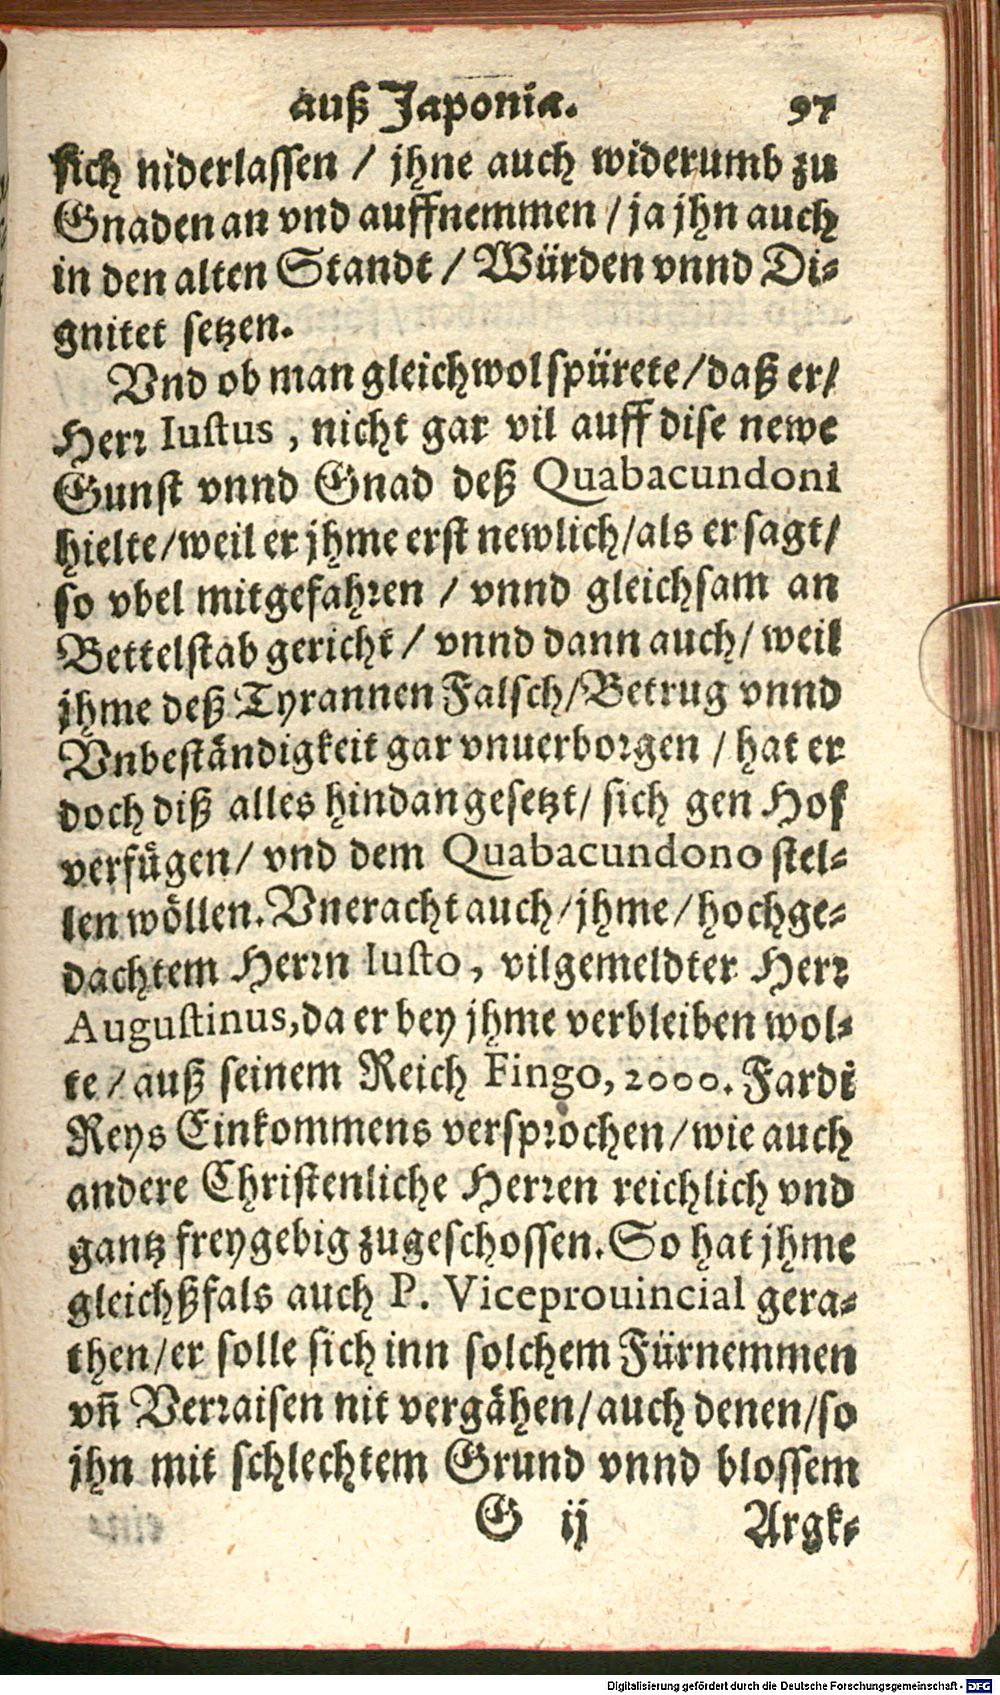 auß Japonia. 97
sich niderlassen / jhne auch widerumb zu
Gnaden an vnd auffnemmen / ja jhn auch
in den alten Standt / Würden vnnd Di-
gnitet setzen.
Vnd ob man gleichwol spürete / daß er /
Herr Iustus, nicht gar vil auff dise newe
Gunst vnnd Gnad deß Quabacundoni
hielte / weil er jhme erst newlich / als er sagt /
so vbel mitgefahren / vnnd gleichsam an
Bettelstab gericht / vnnd dann auch / weil
jhme deß Tyrannen Falsch / Betrug vnnd
Vnbeständigkeit gar vnuerborgen / hat er
doch diß alles hindangesetzt / sich gen Hof
verfügen / vnd dem Quabacundono stel-
len wöllen. Vneracht auch / jhme / hochge-
dachtem Herrn Iusto, vilgemeldter Herr
Augustinus, da er bey jhme verbleiben wol-
te / auß seinem Reich Fingo, 2000. Fardi
Reys Einkommens versprochen / wie auch
andere Christenliche Herren reichlich vnd
gantz freygebig zugeschossen. So hat jhme
gleichßfals auch P. Viceprouincial gera-
then / er solle sich inn solchem Fürnemmen
vñ Verraisen nit vergähen / auch denen / so
jhn mit schlechtem Grund vnnd blossem
G ij Argk-
Digitalisierung gefördert durch die Deutsche Forschungsgemeinschaft - DFG